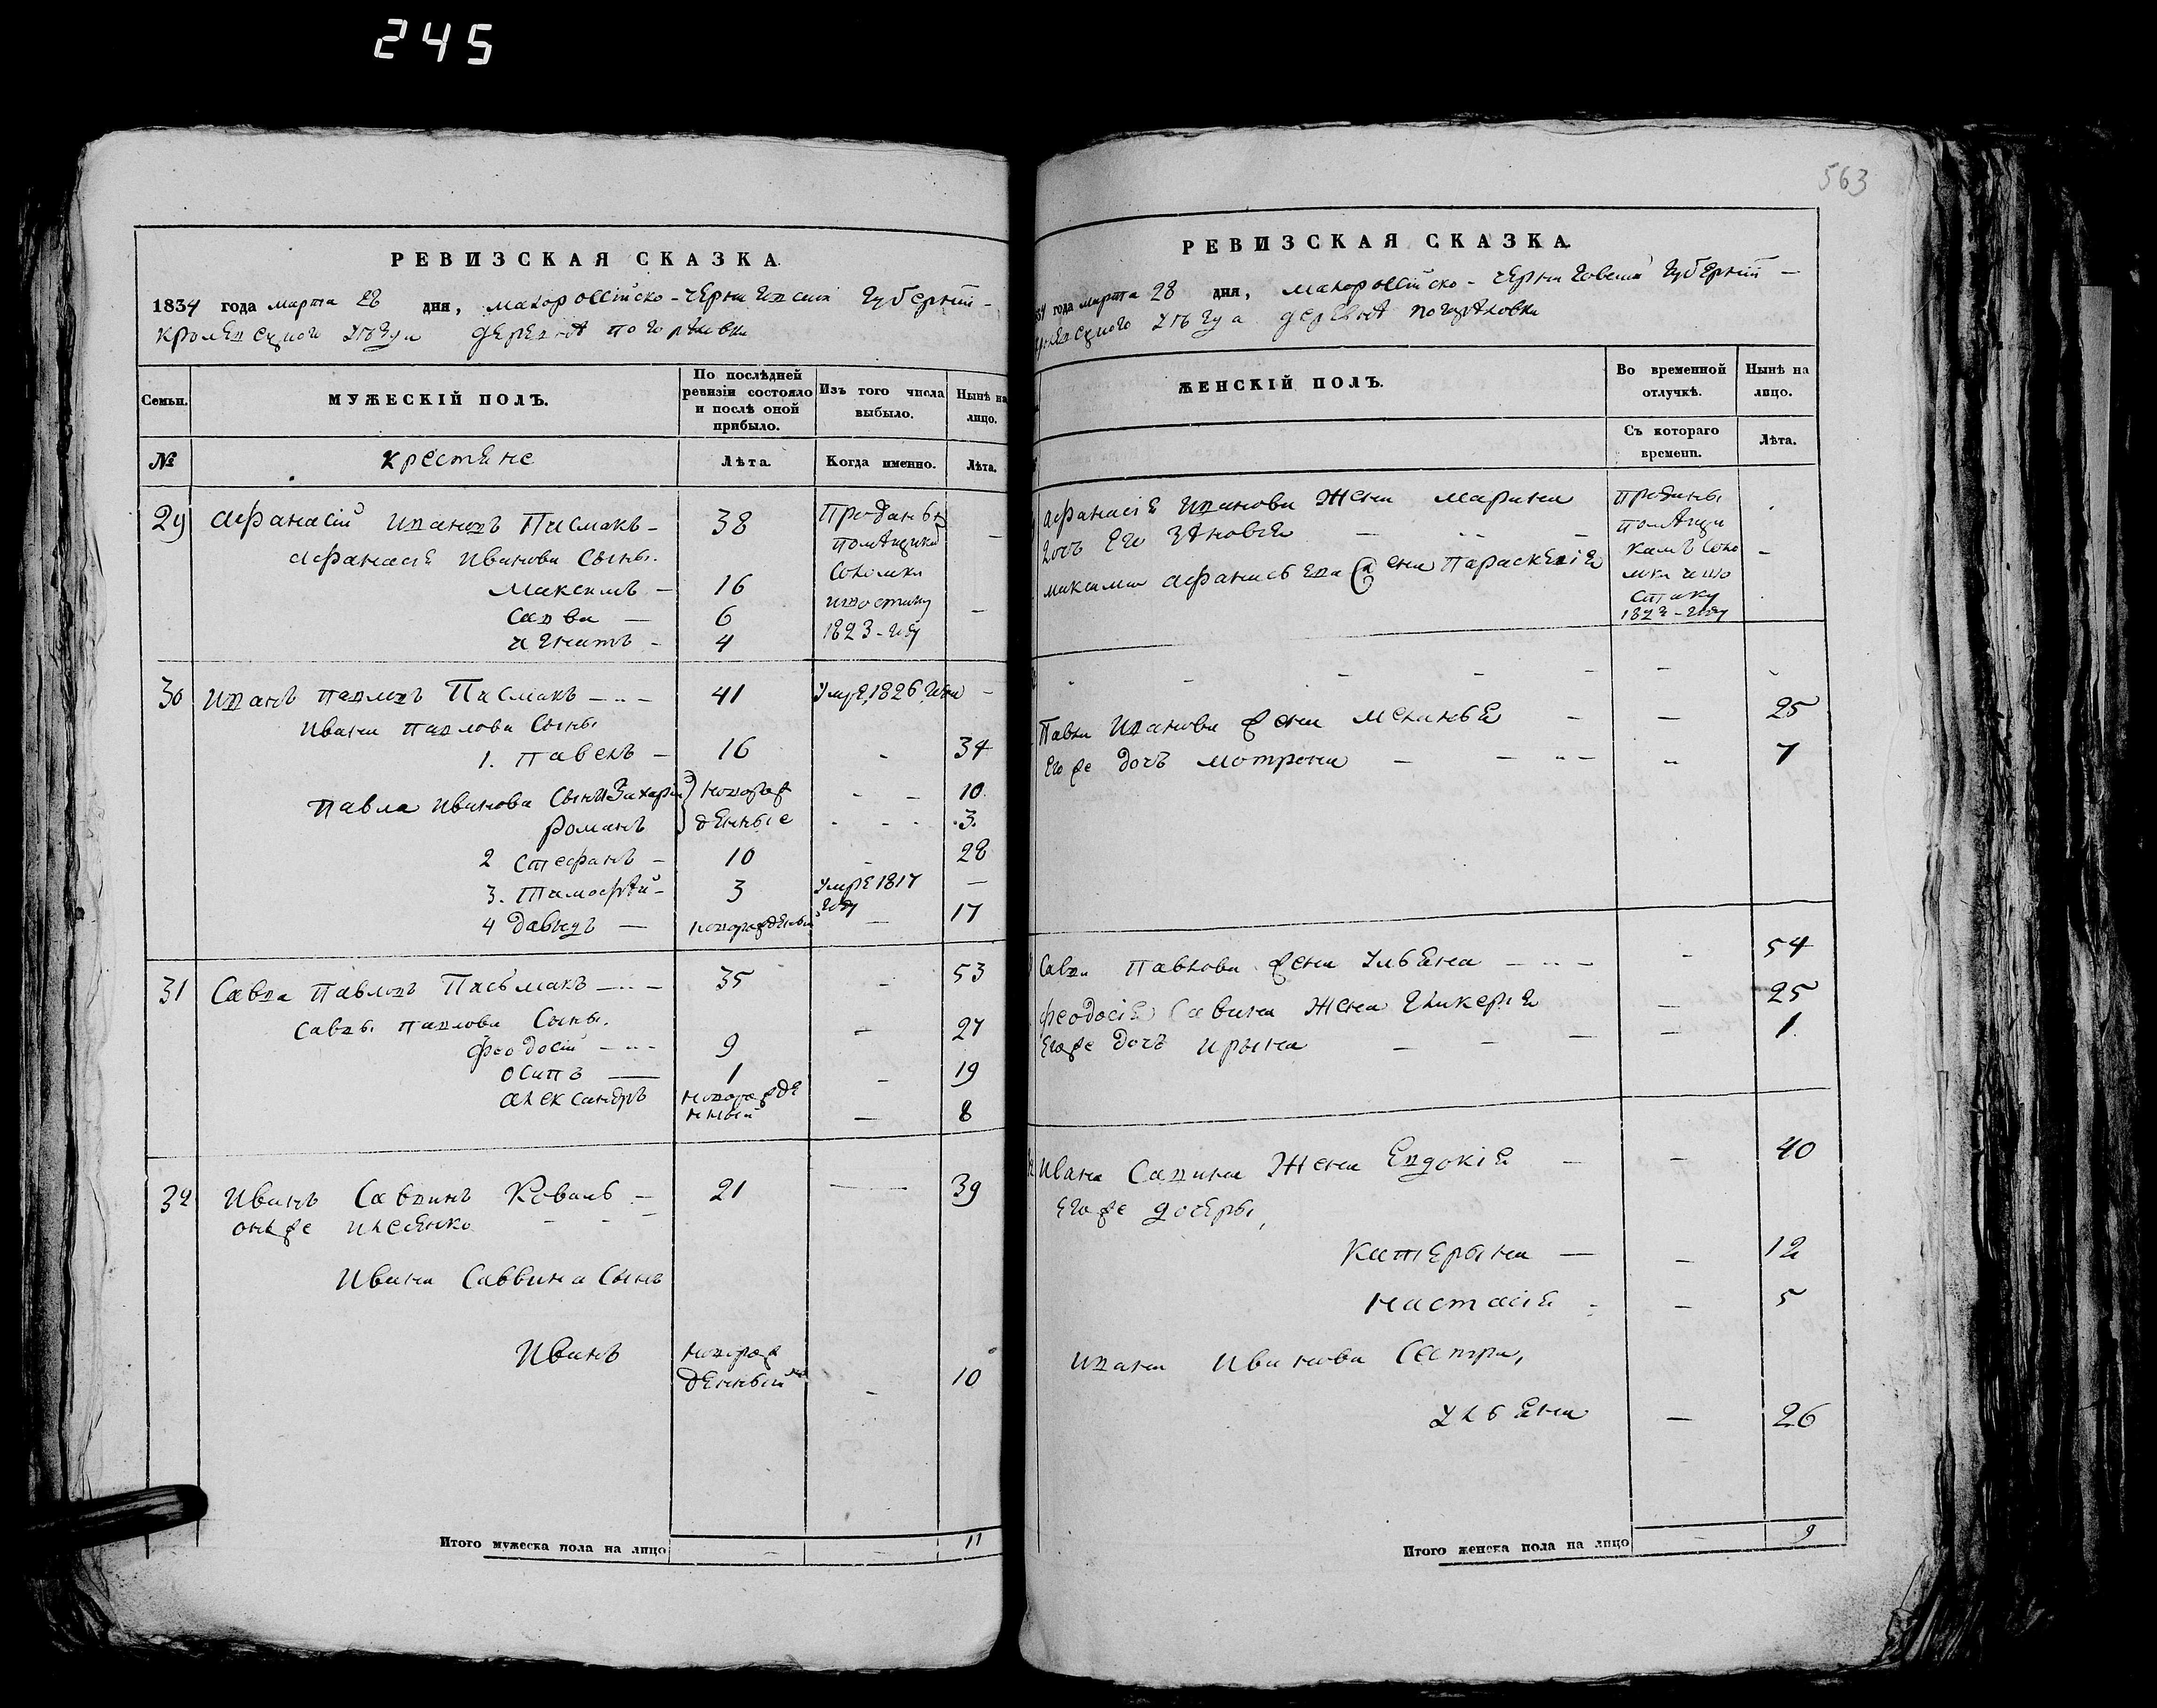 245
563
РЕВИЗСКАЯ СКАЗКА
1834 года марта 28 дня, малороссійско-черниговской губерніи -
кролевецкого уѣзда деревнѣ погорѣловки
Семьи.
МУЖЕСКІЙ ПОЛЪ.
По послѣдней ревизіи состояло и послѣ оной прибыло.
Изъ того числа выбыло.
Нынѣ на лицо.
№
крестЕне
Лѣта.
Когда именно.
Лѣта.
29 Афанасій ивановъ Писмакъ - 38 Проданы
помѣщику
Афанасіе Иванова Сыны.
Максимъ - 16
Савва - 6
игнатъ - 4 1823-году
30 иванъ павловъ Писмакъ - 41 Умре 1826 года -
Ивана павлова Сыны
1. павелъ - 16 - 34
Павла Иванова Сыны Захарій новорож - - 10
романъ денные - - 3.
2 стефанъ - 10 - 28
3. Тимофѣй - 3 Умре 1817 -
году
4 давыдъ - новорожденный - 17
31 Савва Павловъ Письмакъ - 35 - 53
Саввы павлова Сыны.
феодосій - 9 - 27
осипъ - 1 - 19
александръ новорожде
нный - 8
32 Иванъ Саввинъ Коваль - 21 - 39
онже илсенко
Ивана Саввина Сынъ
Иванъ новорож
денный - 10
Итого мужеска пола на лицо - - 11
РЕВИЗСКАЯ СКАЗКА.
34 года марта 28 дня, малороссійско-черниговской губерніи -
кролевецкого уѣзда деревнѣ погорѣловки
ЖЕНСКІЙ ПОЛЪ.
Во временной отлучкѣ.
Нынѣ на лицо.
Съ котораго времени.
Лѣта.
афанасіЕ иванова Жена марина Проданы
дочъ Его зѣновіЕ - помѣщи
максима афанасьева жена ПараскевіЕ
1823-году
Павла иванова жена меланьЕ - - 25
Егоже дочъ мотрона - - 7
Саввы павлова жена УльЕна - - 54
феодосіЕ Савина Жена гликеріЕ - 25
Егоже дочъ ирына - - 1.
Ивана Савина Жена ЕвдокіЕ - - 40
Егоже дочЕры,
КатЕрына - - 12
настасіЕ - - 5
ивана Иванова Сестра,
УльЕна - 26
Итого женска пола на лицо - 9